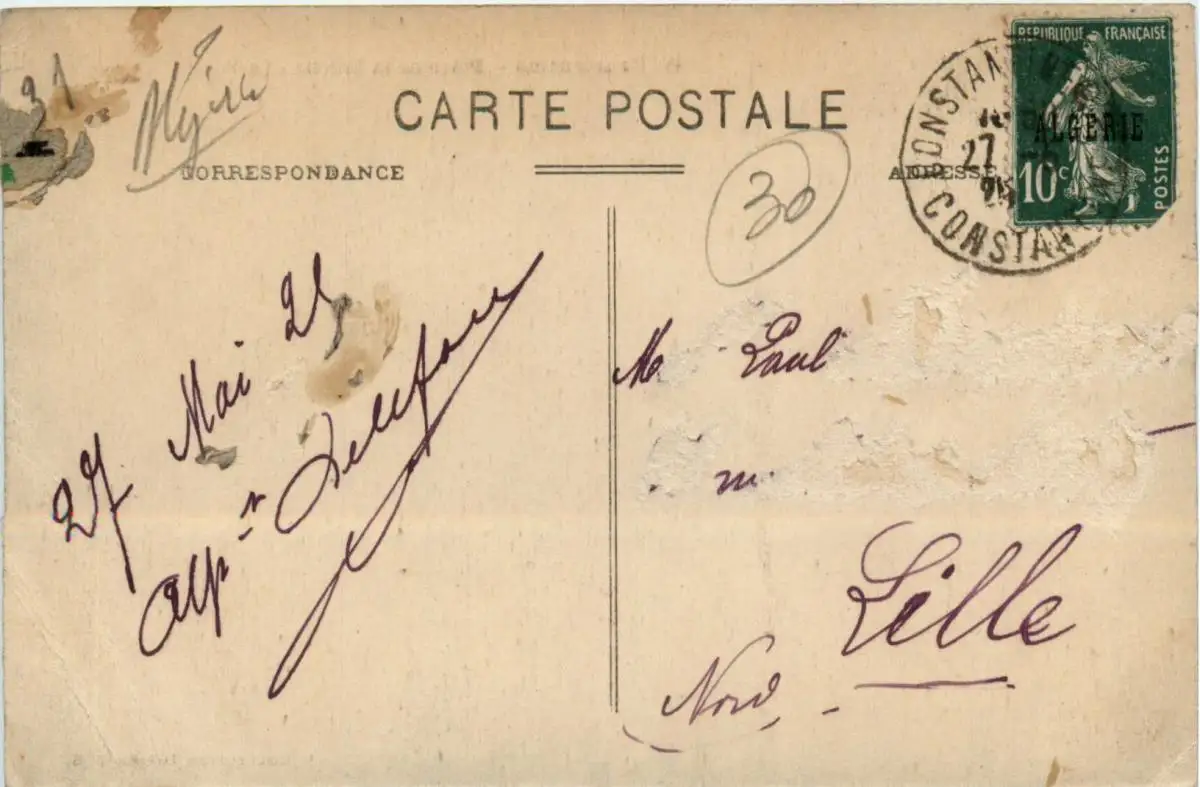 31
Algérie
CARTE POSTALE
CORRESPONDANCE
ADRESSE
30
RÉPUBLIQUE FRANÇAISE
ALGÉRIE
10c
POSTES
CONSTANTINE
27
25
CONSTANTINE
27 Mai 25
M. Paul
Lille
Nord